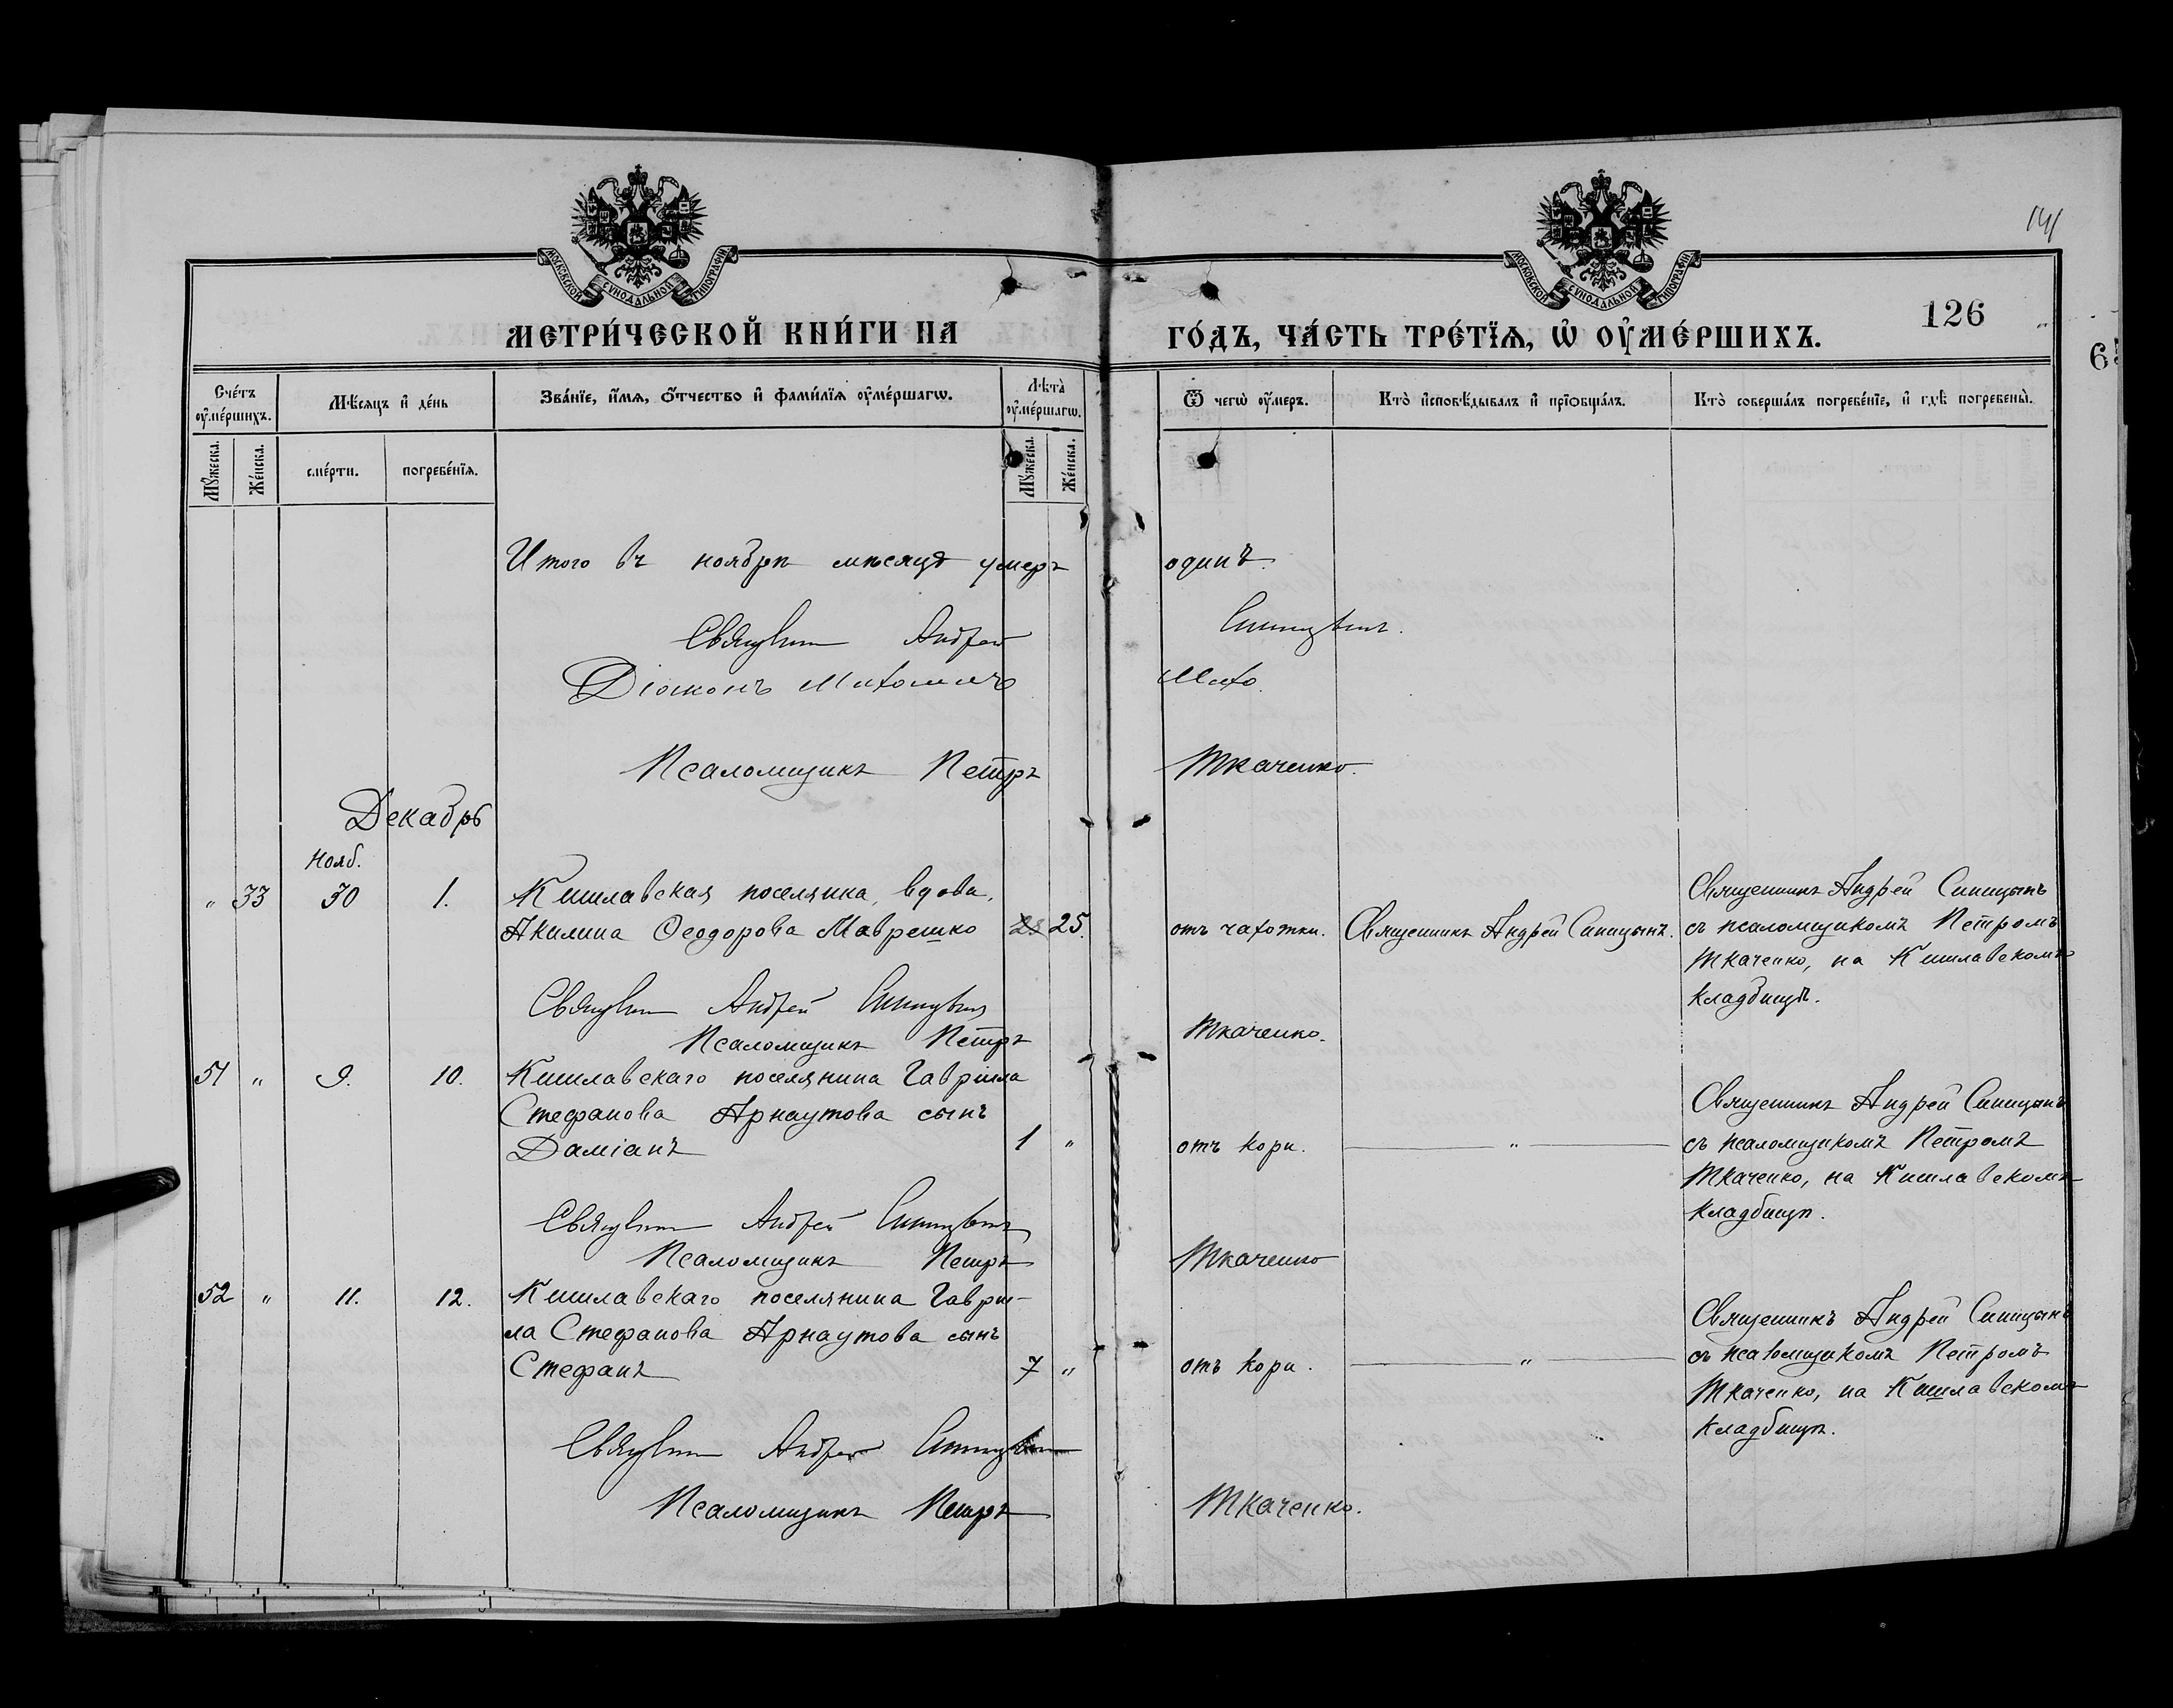 МОСКОВСКОЙ СѴНОДАЛЬНОЙ ТИПОГРАФІИ
МОСКОВСКОЙ СѴНОДАЛЬНОЙ ТИПОГРАФІИ
141
126
МЕТРИ́ЧЕСКОЙ КНИ́ГИ НА ГО́ДЪ, ЧА́СТЬ ТРЕ́ТЇѦ, Ѡ҆ ОУ҆МЕ́РШИХЪ.
Сче́тъ оу҆ме́ршихъ.
Мѣ́сяцъ и҆ де́нь
Зва́нїе, и҆́мѧ, о҆́тчество и҆ фами́лїѧ оу҆ме́ршагѡ.
Лѣта̀ оу҆ме́ршагѡ.
Ѿ чегѡ̀ оу҆́меръ.
Кто̀ и҆сповѣ́дывалъ и҆ прїѻбща́лъ.
Кто̀ соверша́лъ погребе́нїе, и҆ гдѣ̀ погребены̀.
Мꙋ́жеска.
Же́нска.
сме́рти.
погребе́нїѧ.
Мꙋ́жеска.
Же́нска.
Итого въ ноябрѣ мѣсяцѣ умеръ одинъ.
Священникъ Андрей Синицынъ.
Діаконъ
Псаломщикъ Петръ Ткаченко.
Декабрь
Нояб.
" 33 30 1. Кишлавская поселянка, вдова,
Акилина Ѳеодорова Маврешко 25 25. отъ чахотки. Священникъ Андрей Синицынъ.
Священникъ Андрей Синицынъ
съ псаломщикомъ Петромъ
Ткаченко, на Кишлавскомъ
кладбищѣ.
Священникъ Андрей Синицынъ
Псаломщикъ Петръ Ткаченко.
51 " 9. 10. Кишлавскаго поселянина Гавріила
Стефанова Арнаутова сынъ
Даміанъ 1 " отъ кори. — " —
Священникъ Андрей Синицынъ
съ псаломщикомъ Петромъ
Ткаченко, на Кишлавскомъ
кладбищѣ.
Священникъ Андрей Синицынъ
Псаломщикъ Петръ Ткаченко
52 " 11. 12. Кишлавскаго поселянина Гаврии-
ла Стефанова Арнаутова сынъ
Стефанъ 7 " отъ кори. — " —
Священникъ Андрей Синицынъ
съ псаломщикомъ Петромъ
Ткаченко, на Кишлавскомъ
кладбищѣ.
Священникъ Андрей Синицынъ
Псаломщикъ Петръ Ткаченко.